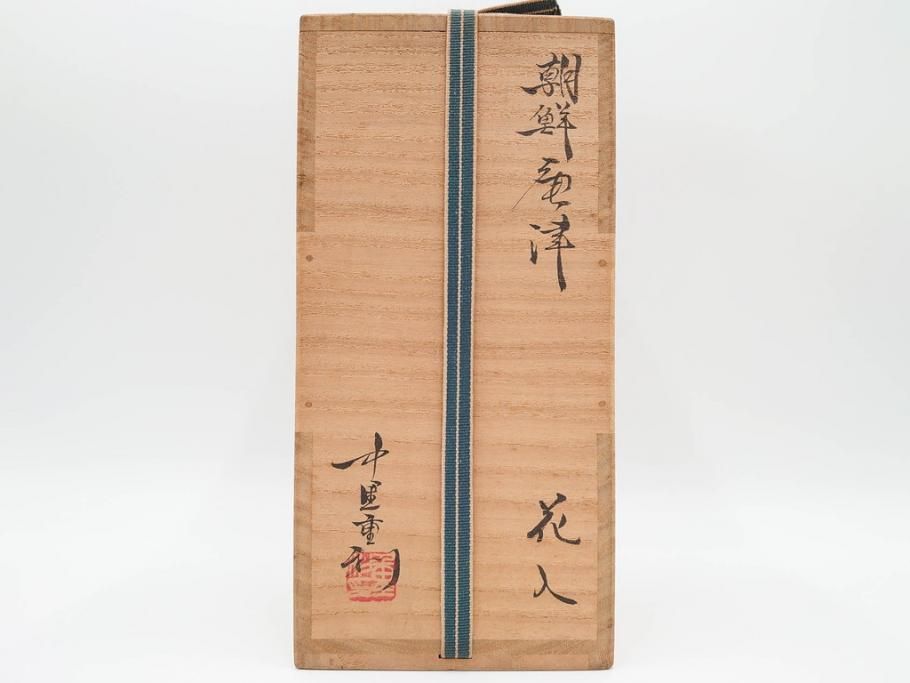 朝鮮唐津
花入
中里重利